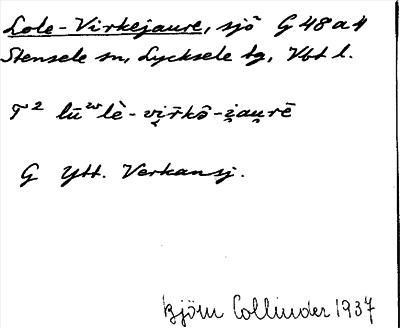 Lole-Virkejaure, sjö G 48 a 4
Stensele sn, Lycksele tg, Vbt l.
T² lūʷlè-vi̯r̄kô-i̯au̯rē
G Ytt. Verkansj.
Björn Collinder 1937